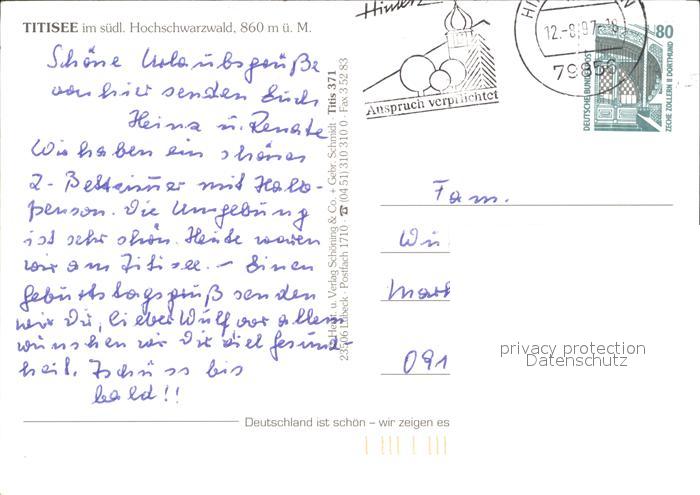 TITISEE im südl. Hochschwarzwald, 860 m ü. M.
Schöne Urlaubsgrüße
von hier senden Euch
Heinz u. Renate
Wir haben ein schönes
2-Bettzimmer mit Halb-
pension. Die Umgebung
ist sehr schön. Heute waren
wir am Titisee. – Einen
Geburtstagsgruß senden
wir Dir, lieber Wulf vor allem
wünschen wir Dir viel Gesund-
heit. Tschüss bis
bald!!
Schöning & Co. + Gebr. Schmidt · Titis 371
23506 Lübeck · Postfach 1710 · ☎ (04 51) 310 310 0 · Fax 3 52 83
Anspruch verpflichtet
12.-8.97-18
79856
80
DEUTSCHE BUNDESPOST
ZECHE ZOLLERN II DORTMUND
Fam.
Wu
Mark
091
privacy protection
Datenschutz
Deutschland ist schön – wir zeigen es